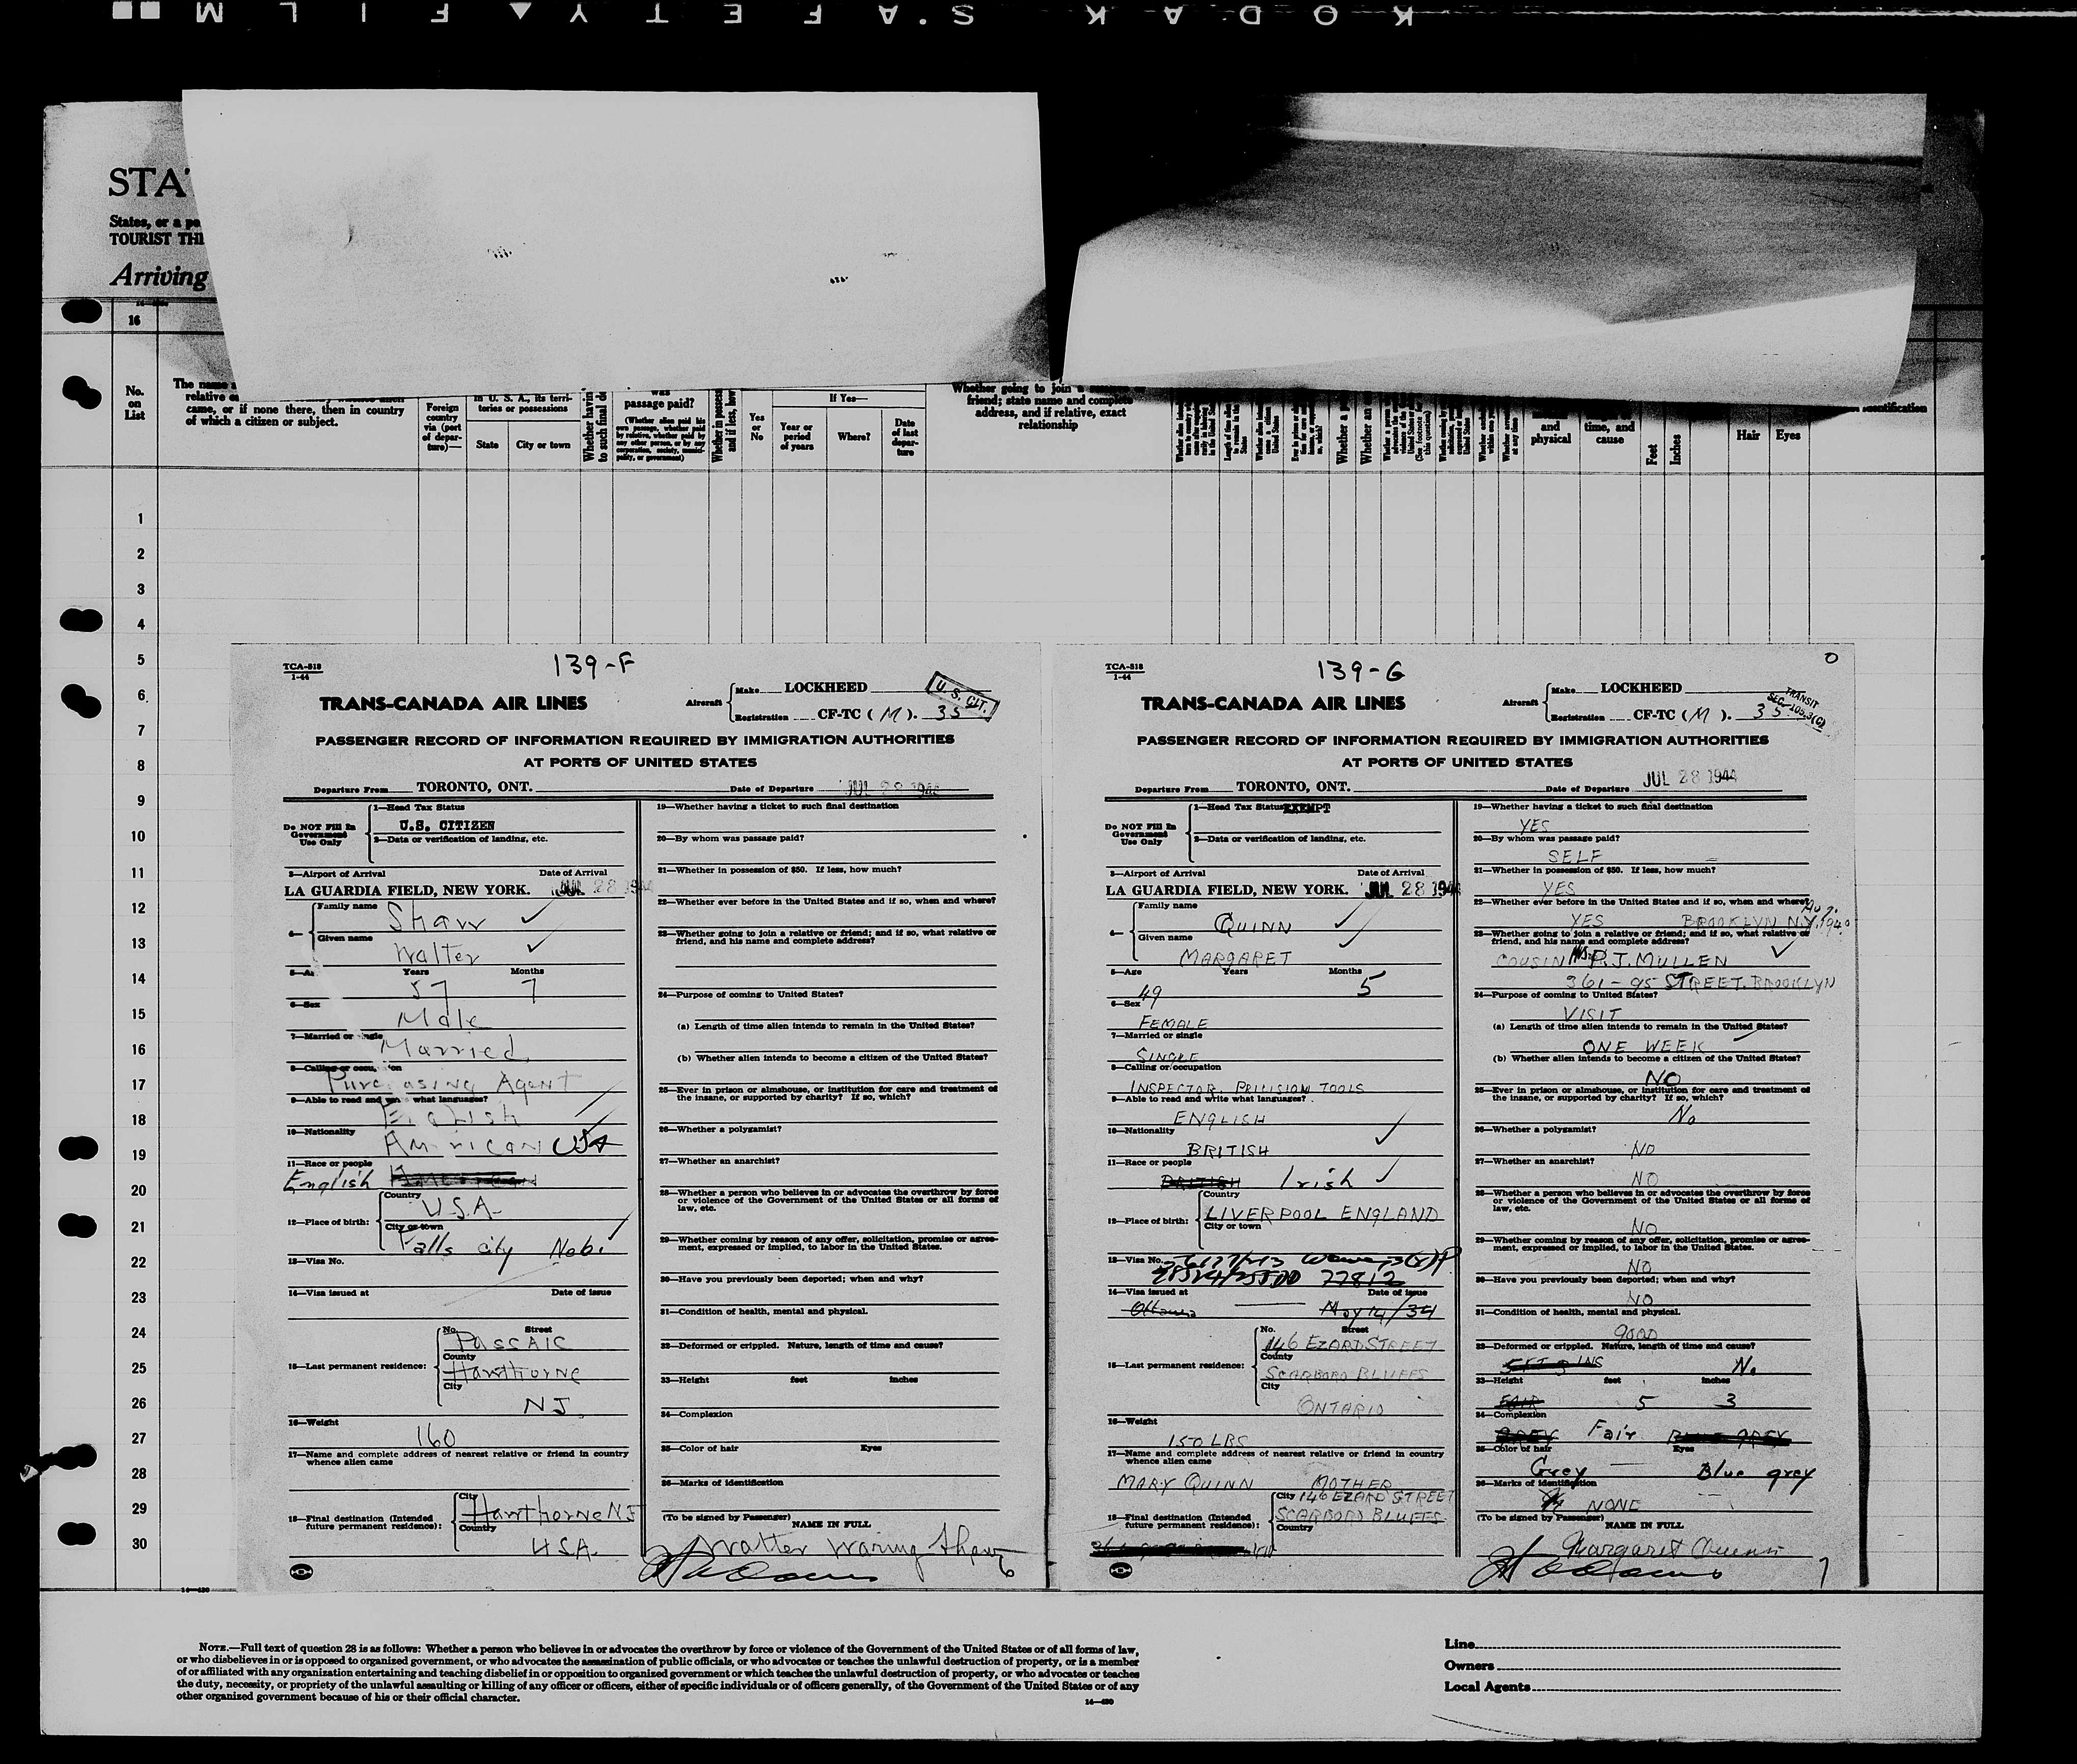 KODAK SAFETY FILM
STAT
States, or a pe
TOURIST THI
Arriving
16
No.
on
List
The name
relative
came, or if none there, then in country
of which a citizen or subject.
Foreign
country
via (port
of depar-
ture)—
in U. S. A., its terri-
tories or possessions
State
City or town
Whether havin
to such final de
was
passage paid?
(Whether alien paid his
own passage, whether paid
by relative, whether paid by
any other person, or by any
corporation, society, munici-
pality, or government)
Whether in possess
and if less, how
Yes
or
No
If Yes—
Year or
period
of years
Where?
Date
of last
depar-
ture
Whether going to join a
friend; state name and complete
address, and if relative, exact
relationship
and
physical
time, and
cause
Feet
Inches
Hair
Eyes
1
2
3
4
5
6
7
8
9
10
11
12
13
14
15
16
17
18
19
20
21
22
23
24
25
26
27
28
29
30
TCA-818
1-44
139-F
TRANS-CANADA AIR LINES
Aircraft
Make LOCKHEED
Registration CF-TC (M). 35
U.S. CIT.
PASSENGER RECORD OF INFORMATION REQUIRED BY IMMIGRATION AUTHORITIES
AT PORTS OF UNITED STATES
Departure From TORONTO, ONT.
Date of Departure JUL 28 1944
Do NOT Fill In
Government
Use Only
1—Head Tax Status
U.S. CITIZEN
2—Data or verification of landing, etc.
3—Airport of Arrival Date of Arrival
LA GUARDIA FIELD, NEW YORK. JUL 28 1944
4—
Family name
Shaw
Given name
Walter
5—A Years Months
57 7
6—Sex
Male
7—Married or single
Married
8—Calling or occupation
Purchasing Agent
9—Able to read and what languages?
English
10—Nationality
American USA
11—Race or people
English
12—Place of birth:
Country
U.S.A.
City or town
Falls city Neb.
13—Visa No.
14—Visa issued at Date of issue
15—Last permanent residence:
No. Street
Passaic
County
Hawthorne
City
NJ
16—Weight
160
17—Name and complete address of nearest relative or friend in country
whence alien came
18—Final destination (Intended
future permanent residence):
City
Hawthorne NJ
Country
USA
19—Whether having a ticket to such final destination
20—By whom was passage paid?
21—Whether in possession of $50. If less, how much?
22—Whether ever before in the United States and if so, when and where?
23—Whether going to join a relative or friend; and if so, what relative or
friend, and his name and complete address?
24—Purpose of coming to United States?
(a) Length of time alien intends to remain in the United States?
(b) Whether alien intends to become a citizen of the United States?
25—Ever in prison or almshouse, or institution for care and treatment of
the insane, or supported by charity? If so, which?
26—Whether a polygamist?
27—Whether an anarchist?
28—Whether a person who believes in or advocates the overthrow by force
or violence of the Government of the United States or all forms of
law, etc.
29—Whether coming by reason of any offer, solicitation, promise or agree-
ment, expressed or implied, to labor in the United States.
30—Have you previously been deported; when and why?
31—Condition of health, mental and physical.
32—Deformed or crippled. Nature, length of time and cause?
33—Height feet inches
34—Complexion
35—Color of hair Eyes
36—Marks of identification
(To be signed by Passenger)
NAME IN FULL
Walter Waring Shaw
6
TCA-818
1-44
139-G
0
TRANS-CANADA AIR LINES
Aircraft
Make LOCKHEED
Registration CF-TC (M). 35
TRANSIT
SEC. 105.3(C)
PASSENGER RECORD OF INFORMATION REQUIRED BY IMMIGRATION AUTHORITIES
AT PORTS OF UNITED STATES
Departure From TORONTO, ONT.
Date of Departure JUL 28 1944
Do NOT Fill In
Government
Use Only
1—Head Tax Status EXEMPT
2—Data or verification of landing, etc.
3—Airport of Arrival Date of Arrival
LA GUARDIA FIELD, NEW YORK. JUL 28 1944
4—
Family name
QUINN
Given name
MARGARET
5—Age Years Months
49 5
6—Sex
FEMALE
7—Married or single
SINGLE
8—Calling or occupation
INSPECTOR. PRECISION TOOLS
9—Able to read and write what languages?
ENGLISH
10—Nationality
BRITISH
11—Race or people
BRITISH Irish
12—Place of birth:
Country
LIVERPOOL ENGLAND
City or town
13—Visa No.
77812
14—Visa issued at Date of issue
Ottawa May 14/34
15—Last permanent residence:
No. Street
146 EZARD STREET
County
SCARBORO BLUFFS
City
ONTARIO
16—Weight
150 LBS
17—Name and complete address of nearest relative or friend in country
whence alien came
MARY QUINN MOTHER
18—Final destination (Intended
future permanent residence):
City 146 EZARD STREET
SCARBORO BLUFFS
Country
19—Whether having a ticket to such final destination
YES
20—By whom was passage paid?
SELF
21—Whether in possession of $50. If less, how much?
YES
22—Whether ever before in the United States and if so, when and where?
YES BROOKLYN N.Y. Aug. 1940
23—Whether going to join a relative or friend; and if so, what relative or
friend, and his name and complete address?
COUSIN Mrs P.J. MULLEN
361-95 STREET. BROOKLYN
24—Purpose of coming to United States?
VISIT
(a) Length of time alien intends to remain in the United States?
ONE WEEK
(b) Whether alien intends to become a citizen of the United States?
NO
25—Ever in prison or almshouse, or institution for care and treatment of
the insane, or supported by charity? If so, which?
No
26—Whether a polygamist?
NO
27—Whether an anarchist?
NO
28—Whether a person who believes in or advocates the overthrow by force
or violence of the Government of the United States or all forms of
law, etc.
NO
29—Whether coming by reason of any offer, solicitation, promise or agree-
ment, expressed or implied, to labor in the United States.
NO
30—Have you previously been deported; when and why?
NO
31—Condition of health, mental and physical.
GOOD
32—Deformed or crippled. Nature, length of time and cause?
5 FT 3 INS No
33—Height feet inches
FAIR 5 3
34—Complexion
GREY Fair BLUE GREY
35—Color of hair Eyes
Grey Blue grey
36—Marks of identification
NONE
(To be signed by Passenger)
NAME IN FULL
Margaret Quinn
7
NOTE.—Full text of question 28 is as follows: Whether a person who believes in or advocates the overthrow by force or violence of the Government of the United States or of all forms of law,
or who disbelieves in or is opposed to organized government, or who advocates the assassination of public officials, or who advocates or teaches the unlawful destruction of property, or is a member
of or affiliated with any organization entertaining and teaching disbelief in or opposition to organized government or which teaches the unlawful destruction of property, or who advocates or teaches
the duty, necessity, or propriety of the unlawful assaulting or killing of any officer or officers, either of specific individuals or of officers generally, of the Government of the United States or of any
other organized government because of his or their official character.
14—490
Line
Owners
Local Agents